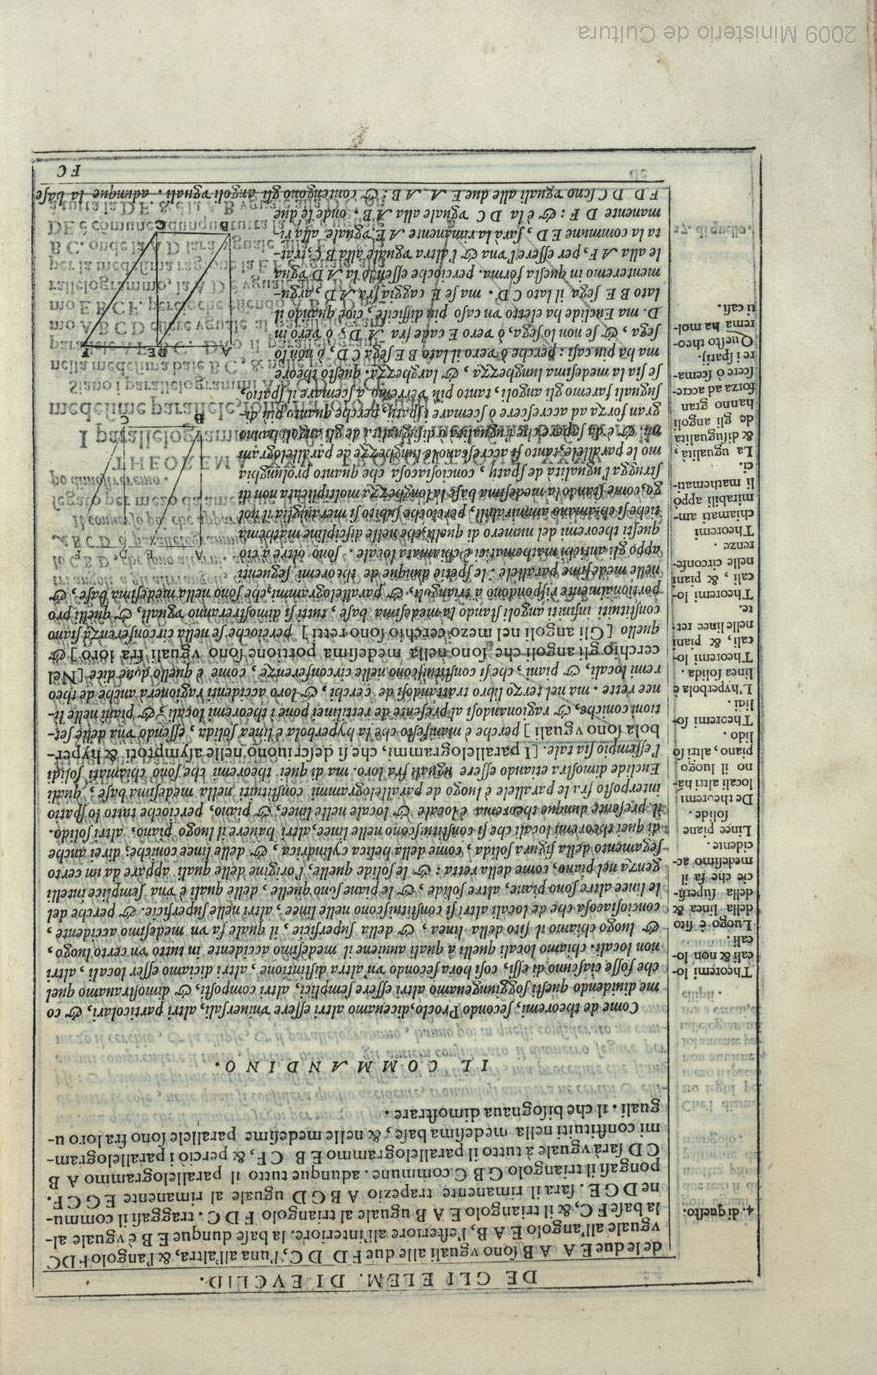 DE GLI ELEM. DI EVCLID.
de le due E A A B sono vguali alle due F D D C, l'una all'altra, & l'angolo F D C
vguale all'angolo E A B, l'esteriore all'interiore. la base dunque E B è vguale al-
la base F C, & il triangolo E A B uguale al triangolo F D C. traggasi il commu-
ne D G E. sarà il rimanente trapezio A B G D uguale al rimanente E G C F.
pongasi il triangolo G B C commune. adunque tutto il parallelogrammo A B
C D sarà vguale à tutto il parallelogrammo E B C F, & perciò i parallelogram-
mi constituiti nella medesima base, & nelle medesime parallele sono fra loro u-
guali. il che bisognaua dimostrare.
4. di questo.
IL COMMANDINO.
Come de theoremi, secondo Proclo, diceuamo altri essere vniuersali, altri particolari, & co
me diuidendo questi soggiungeuamo altri essere semplici, altri composti, & dimostrauamo quel
che fosse ciascuno di essi, così hora secondo vn'altra distintione, altri diciamo esser locali, altri
non locali. chiamo locali quelli à quali auuiene il medesimo accidente in tutto vn certo luogo,
& luogo chiamo il sito della linea, & della superficie, il quale fa vn medesimo accidente,
conciosiacosa che de locali altri si constituiscono nelle linee, altri nelle superficie. & perche del
le linee altre sono piane, altre solide, & le piane sono quelle, delle quali è vna semplice intelli
genza nel piano, come della retta: & le solide quelle, l'origine delle quali appare da un certo
segamento della figura solida, come della helica cylindrica, & delle linee coniche; direi anche
di quei theoremi locali che si constituiscono nelle linee, altri hauere il luogo piano, altri solido.
il presente dunque theorema è locale & locale nelle linee, & piano, percioche tutto lo spatio
interposto fra le parallele è luogo de parallelogrammi constituiti nella medesima base, quali
Euclide dimostra etiandio essere uguali fra loro. ma di quei theoremi che sono chiamati solidi
l'essempio sia tale. [I parallelogrammi, che si descriuono nelle asymptoti & hyper-
bola sono vguali] perche è manifesto che la hyperbola è linea solida, essendo vna delle set-
tioni coniche, & ragionandosi al presente de rettilinei pone i theoremi locali & piani nelle li-
nee rette. ma nel terzo libro trattandosi de cerchi, & loro accidenti ragionerà anche de theo
remi locali, & piani, che si constituiscono nelle circonferenze, come è quello doue dice [Nel
cerchio gli angoli che sono nella medesima portione sono vguali fra loro] &
quello [Gli angoli nel mezo cerchio sono retti] percioche se nella circonferenza siano
constituiti infiniti angoli stando la medesima base, tutti si dimostreranno vguali, & quelli pro
portionatamente rispondono a triangoli, & parallelogrammi, che sono nella medesima base, &
nelle medesime parallele. le spetie dunque de theoremi seguenti
appo gli antichi mathematici è chiamata locale. sono oltre à ciò
questi theoremi del numero di quelli che nelle discipline mathema
tiche si chiamano ammirabili, percioche subito si marauiglia il vol
go, come stando la medesima base la lunghezza moltiplicata non di
strugga l'ugualità de spatij, conciosiacosa che quanto prolunghia
mo le parallele tanto si accrescano le lunghezze de parallelogram
gran forza ad accrescere o scemare i spatij, perche quanto piu di-
suguali saremo gli angoli, tanto piu verremo à scemare il spatio,
se sia la medesima lunghezza, & larghezza. questo theore
ma ha piu casi: perche ò vero il lato B E sega C D, ò non lo
sega, & se non lo sega, ò vero E cade fra A D, ò vero in
D. ma Euclide ha eletto vn caso piu difficile, cioè quando il
lato B E sega il lato C D. ma se E caggia fra A D, argu-
menteremo in questa forma. percioche essendo la A D ugua
le alla A F, per essere l'una & l'altra vguale alla B C, trat-
ta la commune E D, sarà la rimanente A E vguale alla ri-
manente D F: & è la D C vguale alla A B, onde le due
F D D C sono vguali alle due E A A B: & contengono gli angoli vguali. adunque la base
FC
Theoremi lo-
cali & non lo-
cali.
Luogo è sito
della linea &
della superfi-
cie che fa il
medesimo ac-
cidente.
Linee piane
solide.
De theoremi
locali altri hā-
no il luogo
piano, altri so
lido.
Theoremi so-
lidi.
L'hyperbola è
linea solida.
Theoremi lo-
cali, & piani
nelle linee ret-
te.
Theoremi lo-
cali, & piani
nelle circonfe-
renze.
Theoremi
chiamati am-
mirabili appo
li mathemati-
ci.
La ugualità,
& disugualità
de gli angoli
hanno gran
forza ad accre-
scere ò scema-
re i spatij.
Questo theo-
rema ha mol-
ti casi.
2009 Ministerio de Cultura